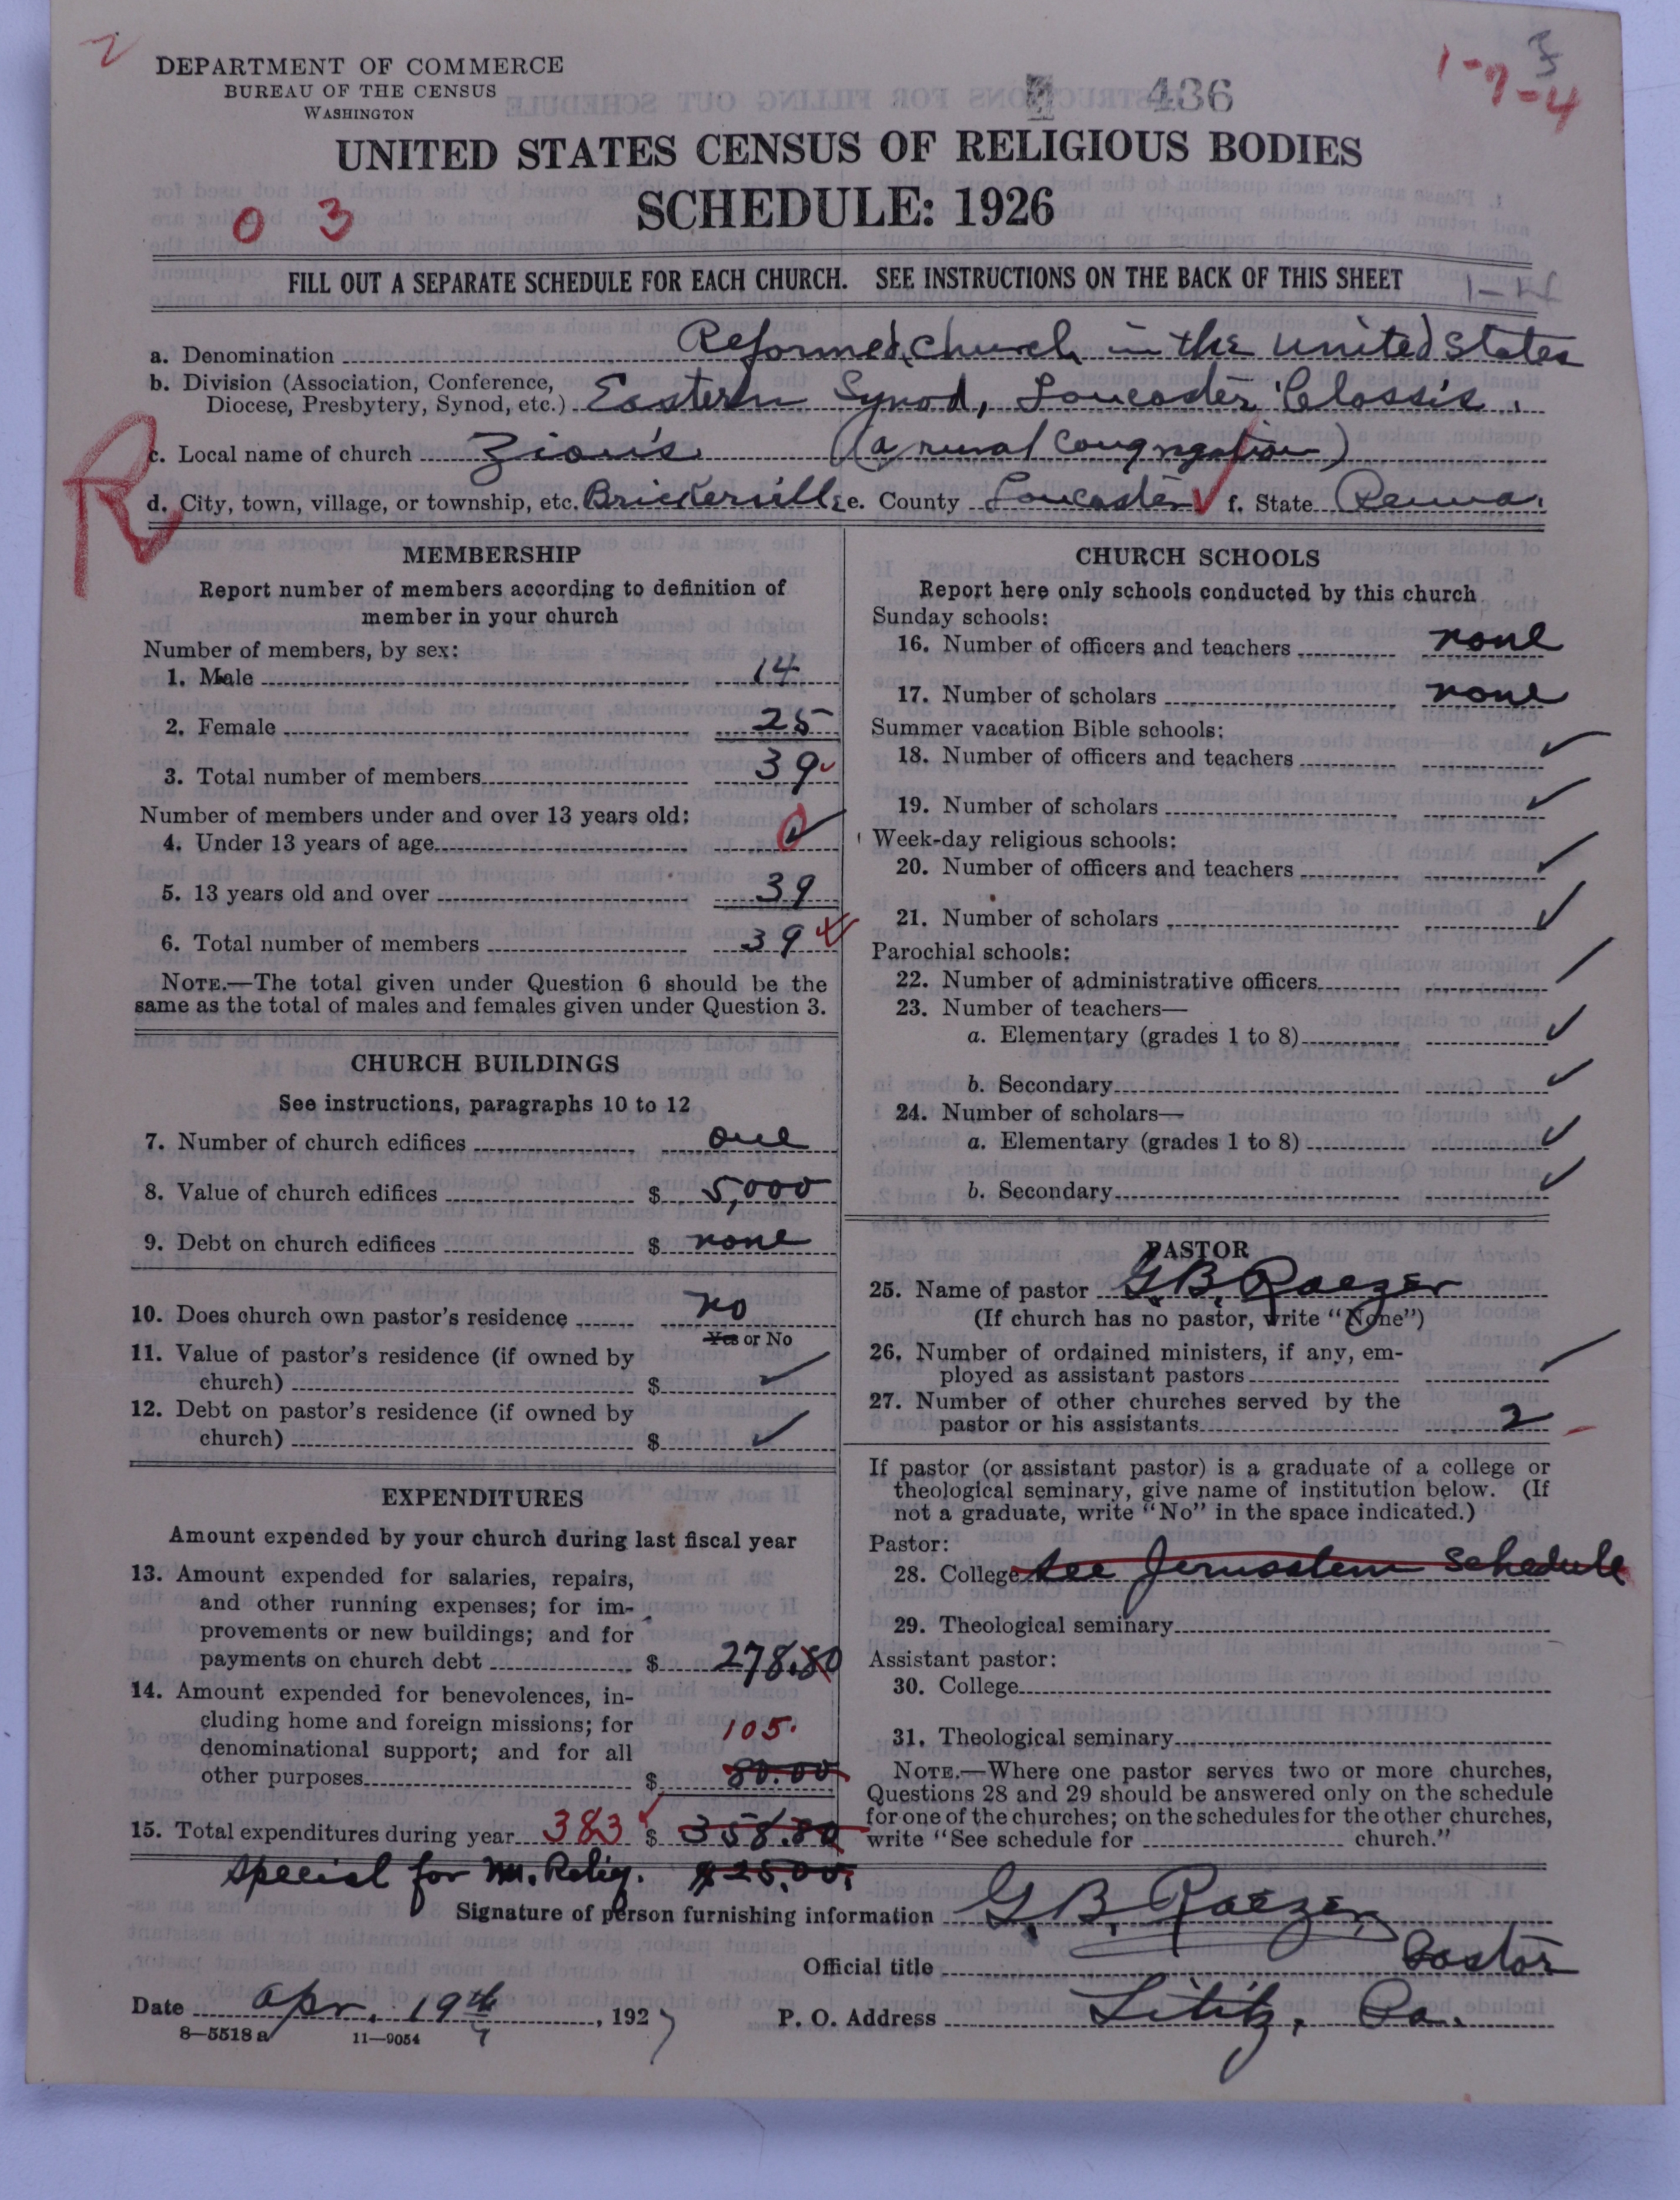 2
DEPARTMENT OF COMMERCE
BUREAU OF THE CENSUS
WASHINGTON
436
3
1-7-4
UNITED STATES CENSUS OF RELIGIOUS BODIES
SCHEDULE: 1926
0 3
FILL OUT A SEPARATE SCHEDULE FOR EACH CHURCH. SEE INSTRUCTIONS ON THE BACK OF THIS SHEET
1-4
a. Denomination Reformed Church in the United States
b. Division (Association, Conference,
Diocese, Presbytery, Synod, etc.) Eastern Synod, Lancaster Classis.
R
c. Local name of church Zion's (a rural congregation)
d. City, town, village, or township, etc. Brickerville e. County Lancaster f. State Penna.
MEMBERSHIP
Report number of members according to definition of
member in your church
Number of members, by sex:
1. Male 14
2. Female 25
3. Total number of members 39
Number of members under and over 13 years old:
4. Under 13 years of age 0
5. 13 years old and over 39
6. Total number of members 39
NOTE.—The total given under Question 6 should be the
same as the total of males and females given under Question 3.
CHURCH BUILDINGS
See instructions, paragraphs 10 to 12
7. Number of church edifices one
8. Value of church edifices $ 5,000
9. Debt on church edifices $ none
10. Does church own pastor's residence no
Yes or No
11. Value of pastor's residence (if owned by
church) $ ✓
12. Debt on pastor's residence (if owned by
church) $ ✓
EXPENDITURES
Amount expended by your church during last fiscal year
13. Amount expended for salaries, repairs,
and other running expenses; for im-
provements or new buildings; and for
payments on church debt $ 278.80
14. Amount expended for benevolences, in-
cluding home and foreign missions; for
denominational support; and for all
other purposes $ 105. 80.00
15. Total expenditures during year 383 $ 358.80
Special for M. Relig. $25.00
CHURCH SCHOOLS
Report here only schools conducted by this church
Sunday schools:
16. Number of officers and teachers none
17. Number of scholars none
Summer vacation Bible schools:
18. Number of officers and teachers ✓
19. Number of scholars ✓
Week-day religious schools:
20. Number of officers and teachers ✓
21. Number of scholars ✓
Parochial schools:
22. Number of administrative officers ✓
23. Number of teachers—
a. Elementary (grades 1 to 8) ✓
b. Secondary ✓
24. Number of scholars—
a. Elementary (grades 1 to 8) ✓
b. Secondary ✓
PASTOR
25. Name of pastor G. B. Raezer
(If church has no pastor, write "None")
26. Number of ordained ministers, if any, em-
ployed as assistant pastors ✓
27. Number of other churches served by the
pastor or his assistants 2
If pastor (or assistant pastor) is a graduate of a college or
theological seminary, give name of institution below. (If
not a graduate, write "No" in the space indicated.)
Pastor:
28. College See Jerusalem Schedule
29. Theological seminary
Assistant pastor:
30. College
31. Theological seminary
NOTE.—Where one pastor serves two or more churches,
Questions 28 and 29 should be answered only on the schedule
for one of the churches; on the schedules for the other churches,
write "See schedule for church."
Signature of person furnishing information G. B. Raezer
Official title Pastor
Date Apr. 19th, 1927 P. O. Address Lititz, Pa.
8—5518 a 11—9054